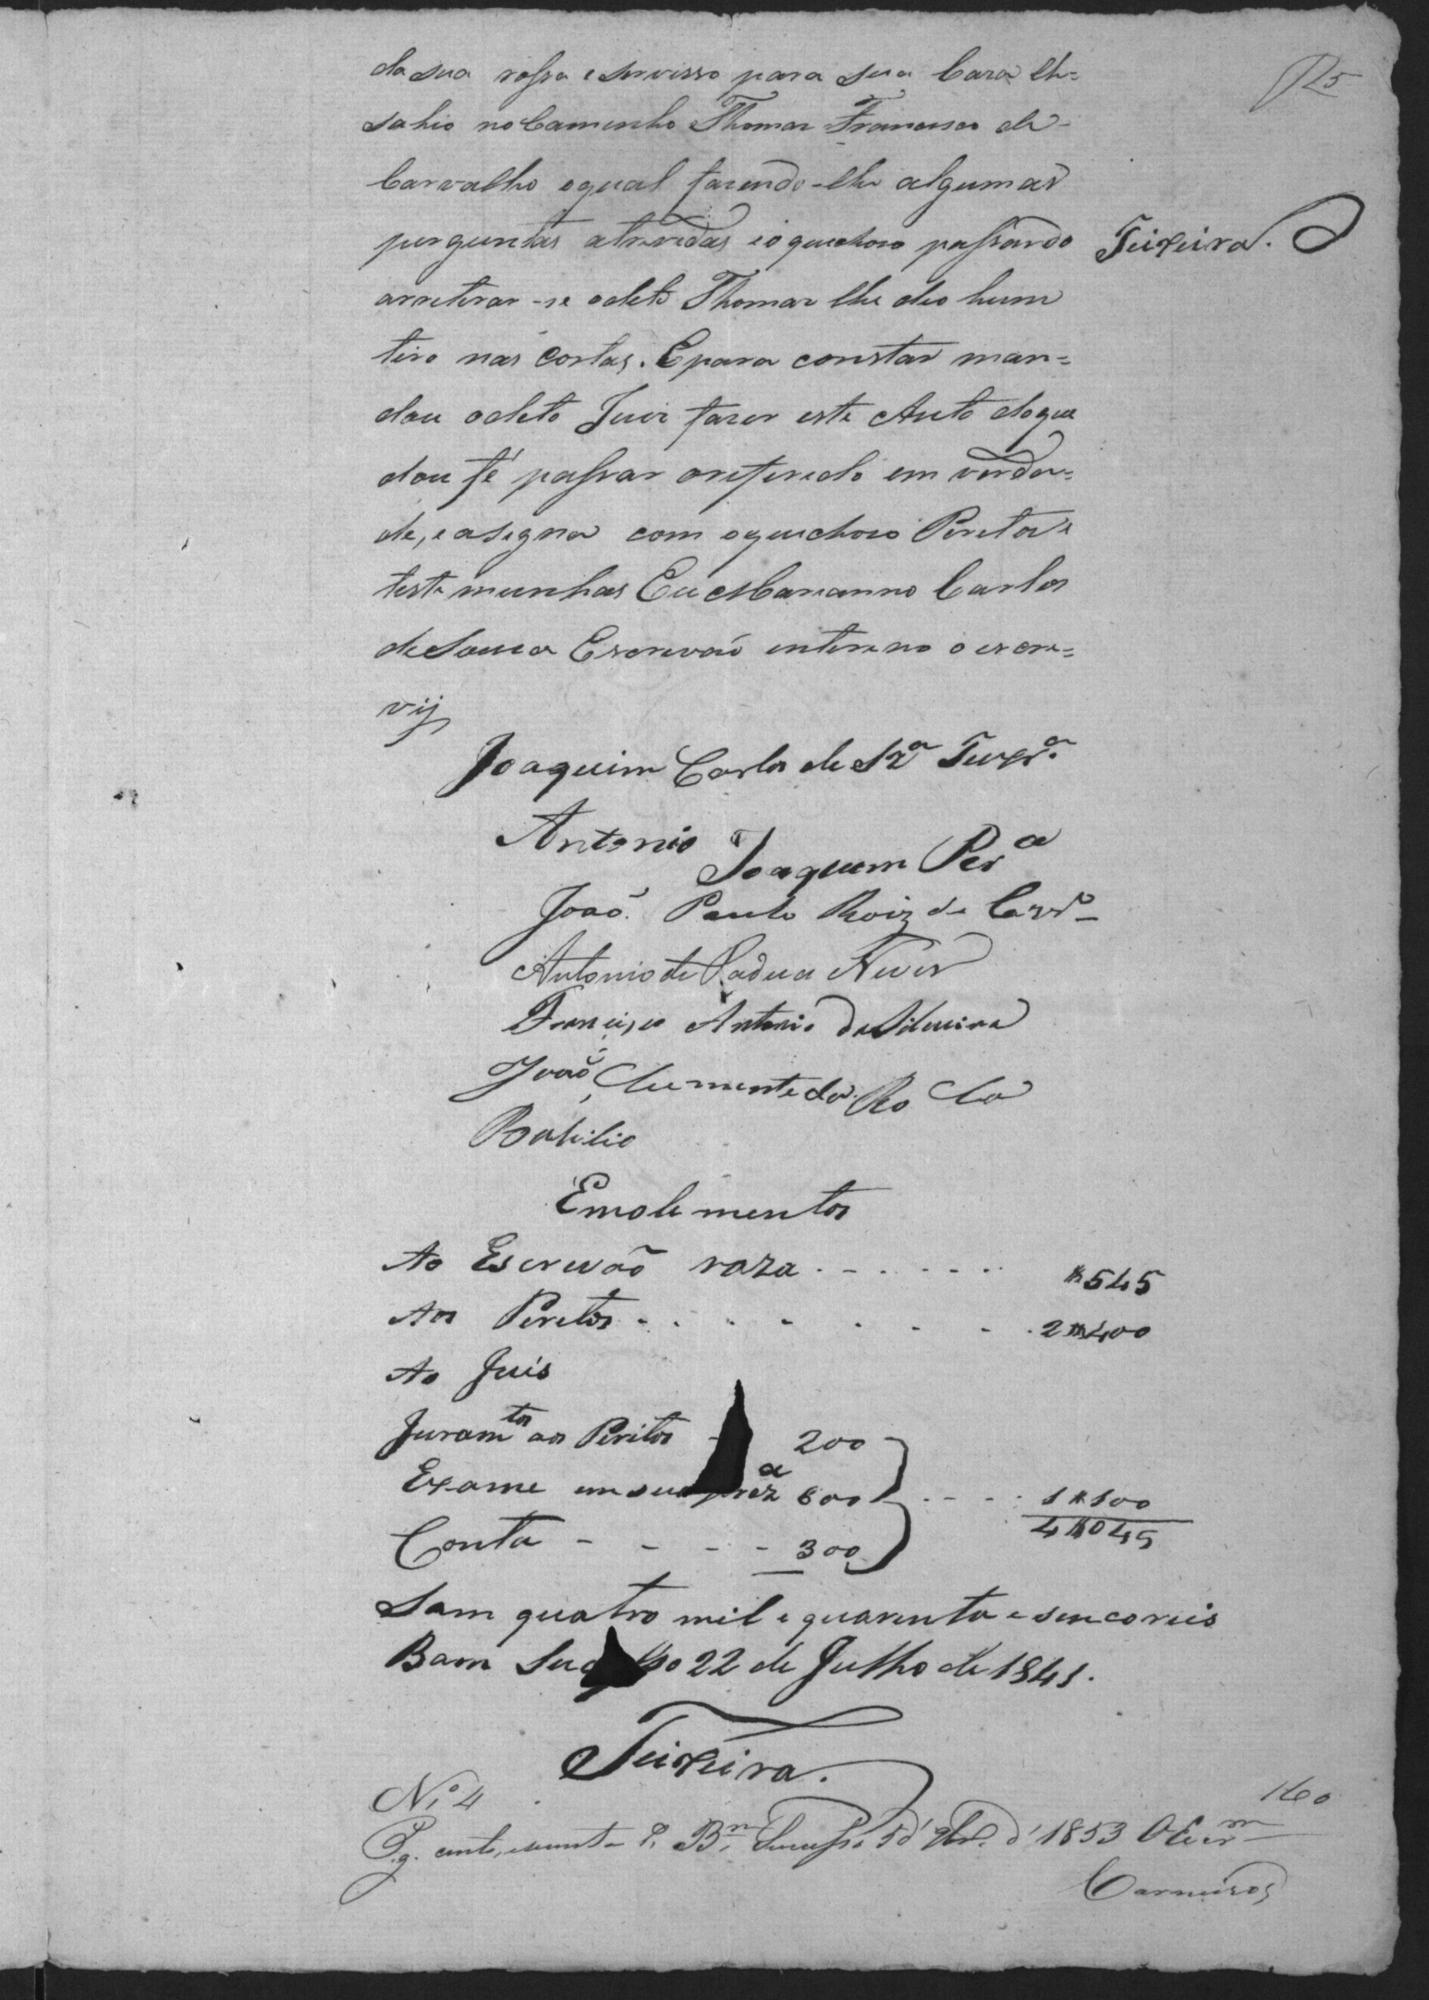 da sua rossa e servisso para sua Caza lhe=
sahio no Caminho Thomaz Francisco de
Carvalho o qual fazendo-lhe algumas
perguntas atrevidas e o queichoso passando
Teixeira.
arretirar-se o dito Thomaz lhe deo hum
tiro nas Costas. E para constar man=
dou o dito Juiz fazer este Auto do que
dou fé passar o referido em verda=
de, e asigna com o queichoso Peritos e
testemunhas Eu Marianno Carlos
de Souza Escrevaõ enterino o escre=
vij
Joaquim Carlos de Sz.ª Teixr.ª
Antonio Joaquim Per.ª
Joaõ Paulo Roiz de Carv.º
Antonio de Padua Neves
Francisco Antonio da Silveira
Joaõ Clemente da Rocha
Bazilio
Emolementos
Ao Escrevaõ raza . - . - . . . $545
Aos Peretos - . . . - . - . 2$400
Ao Juis
Juram.tos aos Peritos - 200
Exame em sua prez.ª 600 . - - . 1$100
4$045
Conta - - - - 300
Sam quatro mil e quarenta e sencoreis
Bam Suc so 22 de Julho de 1841.
Teixeira.
N.º 4 160
Pg. cento, e sessenta r.s B.m Successo 5 d' 9br.º d' 1853
Carneiros